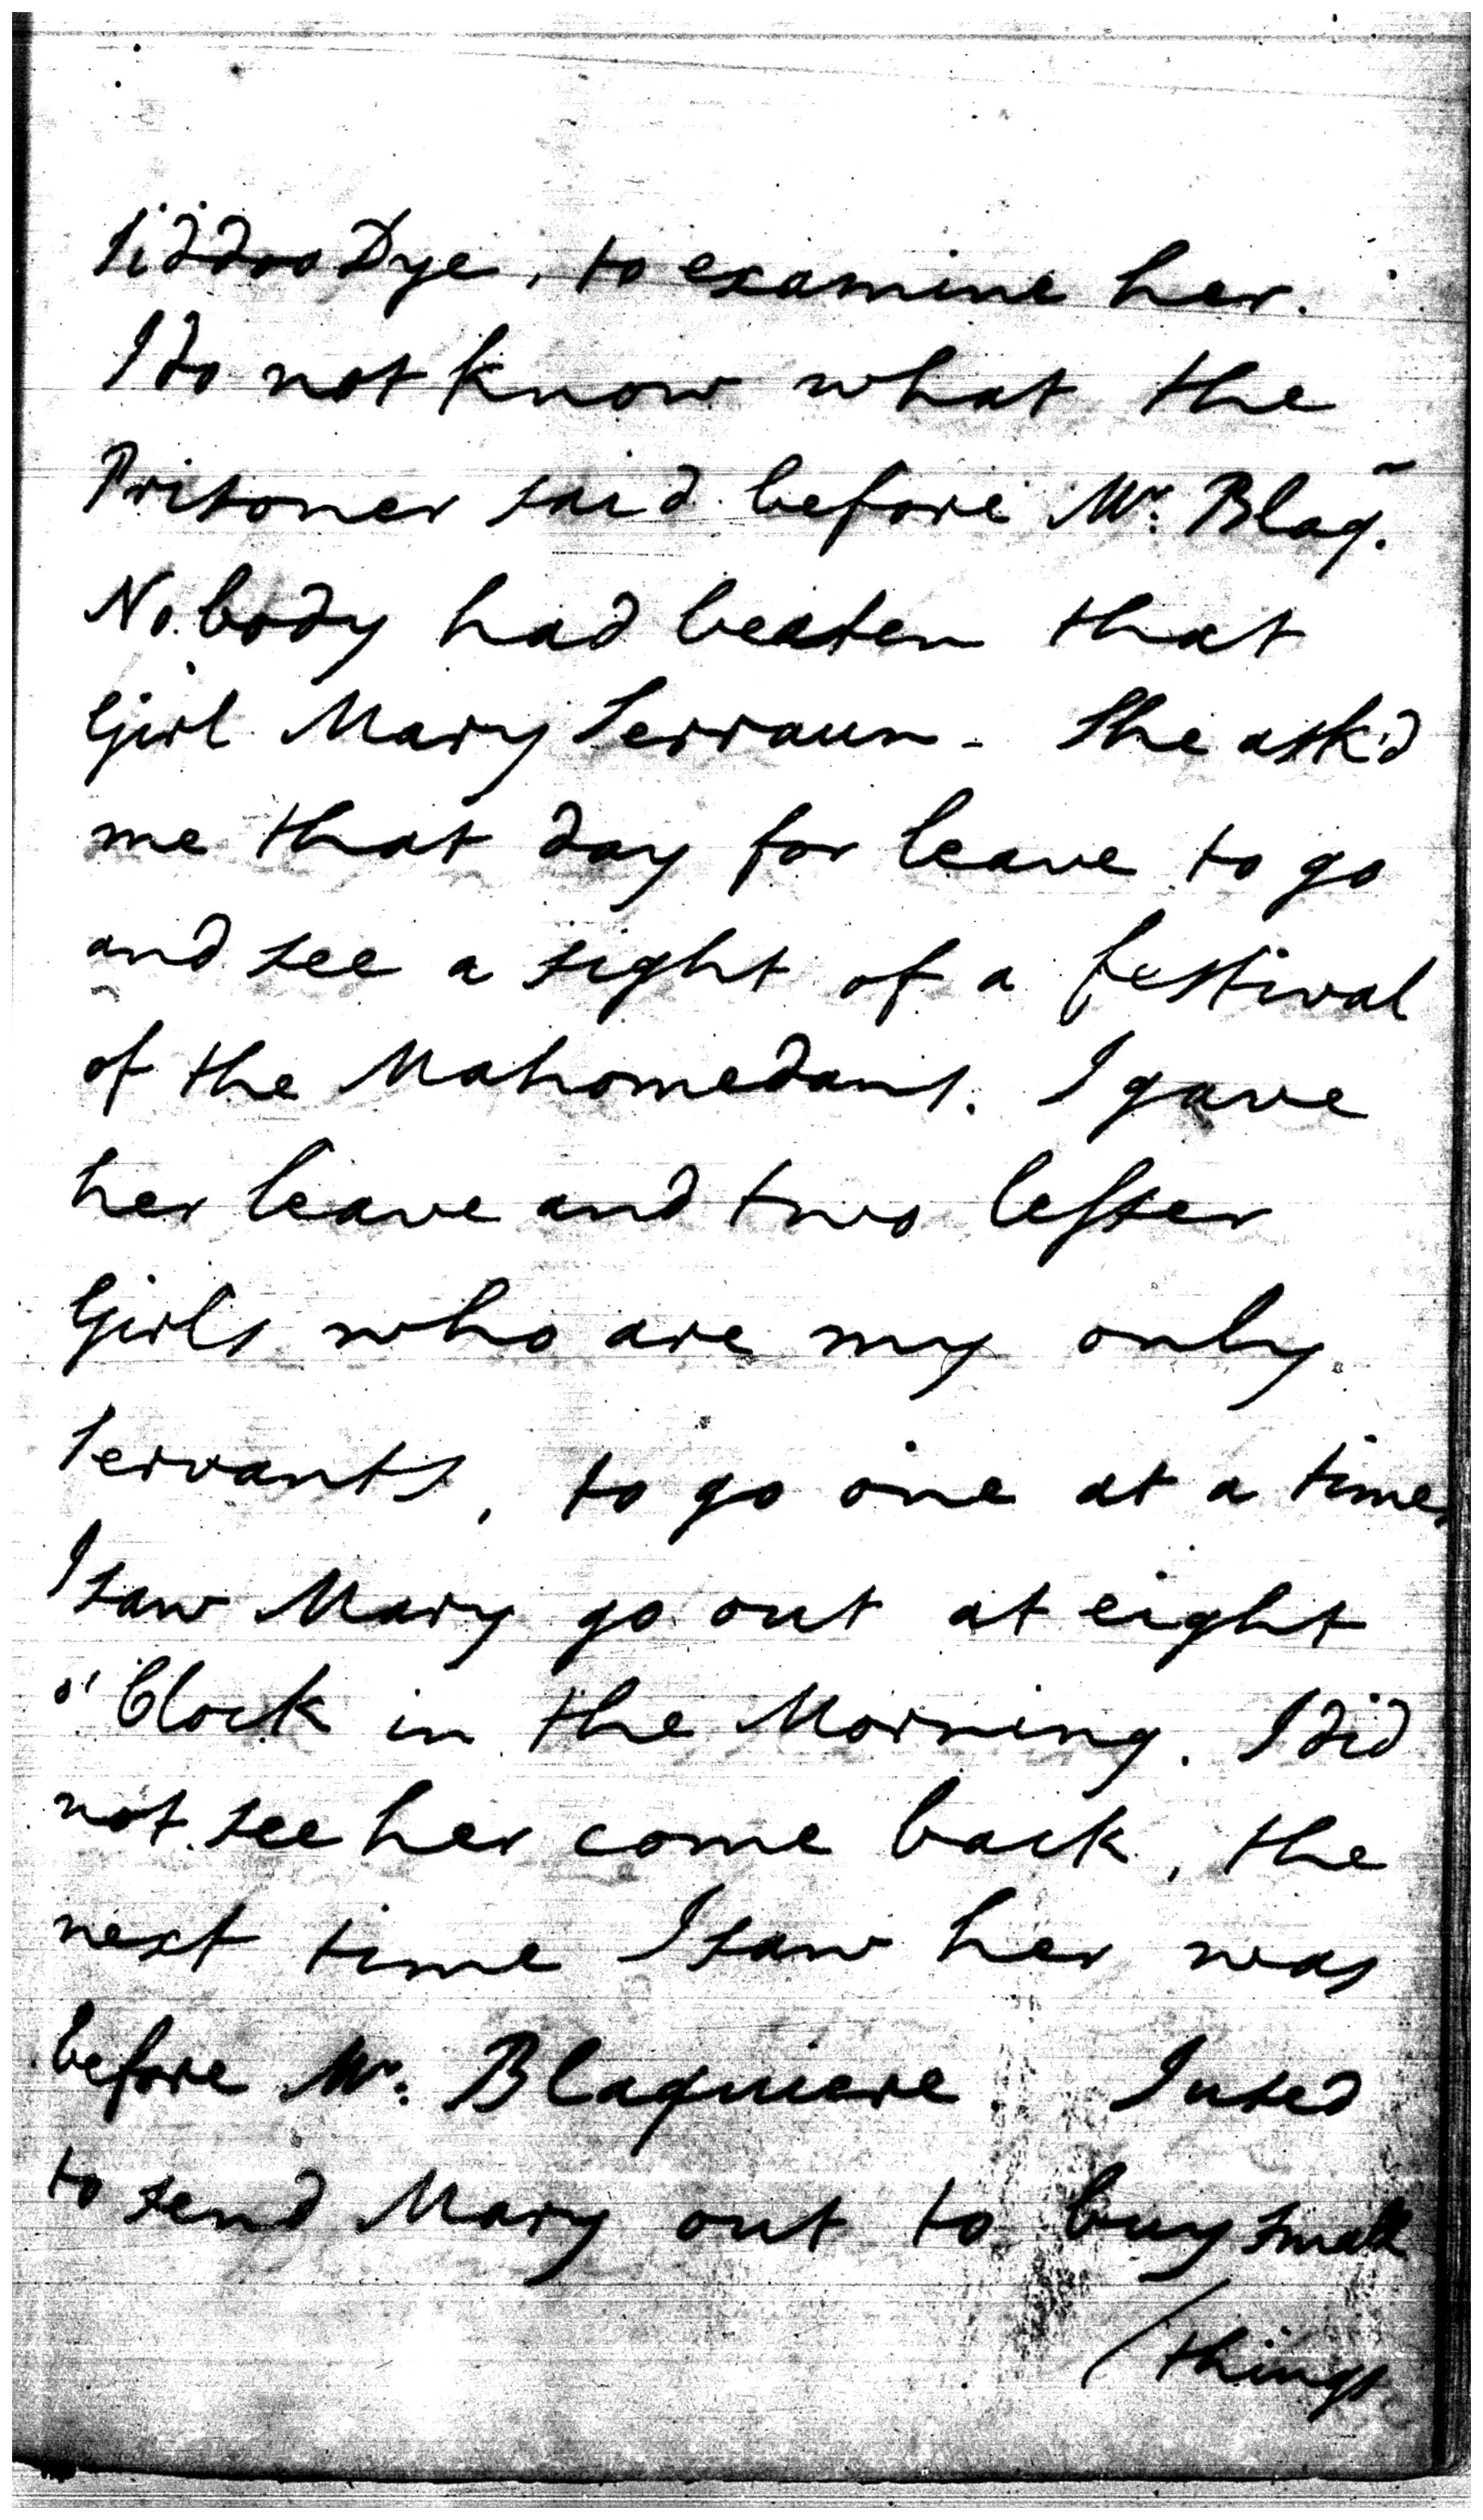 Siddoo Dye, to examine her.
I do not know what the
Prisoner said before Mr. Blaq.
No. body had beaten that
Girl Mary Serraun - She ask'd
me that day for leave to go
and see a sight of a festival
of the Mahomedans. I gave
her leave and two lesser
Girls who are my only
Servants, to go one at a time,
I saw Mary go out at eight
o' Clock in the Morning. I did
not see her come back, the
next time I saw her was
before Mr. Blaquiere I used
to send Mary out to buy small
/things